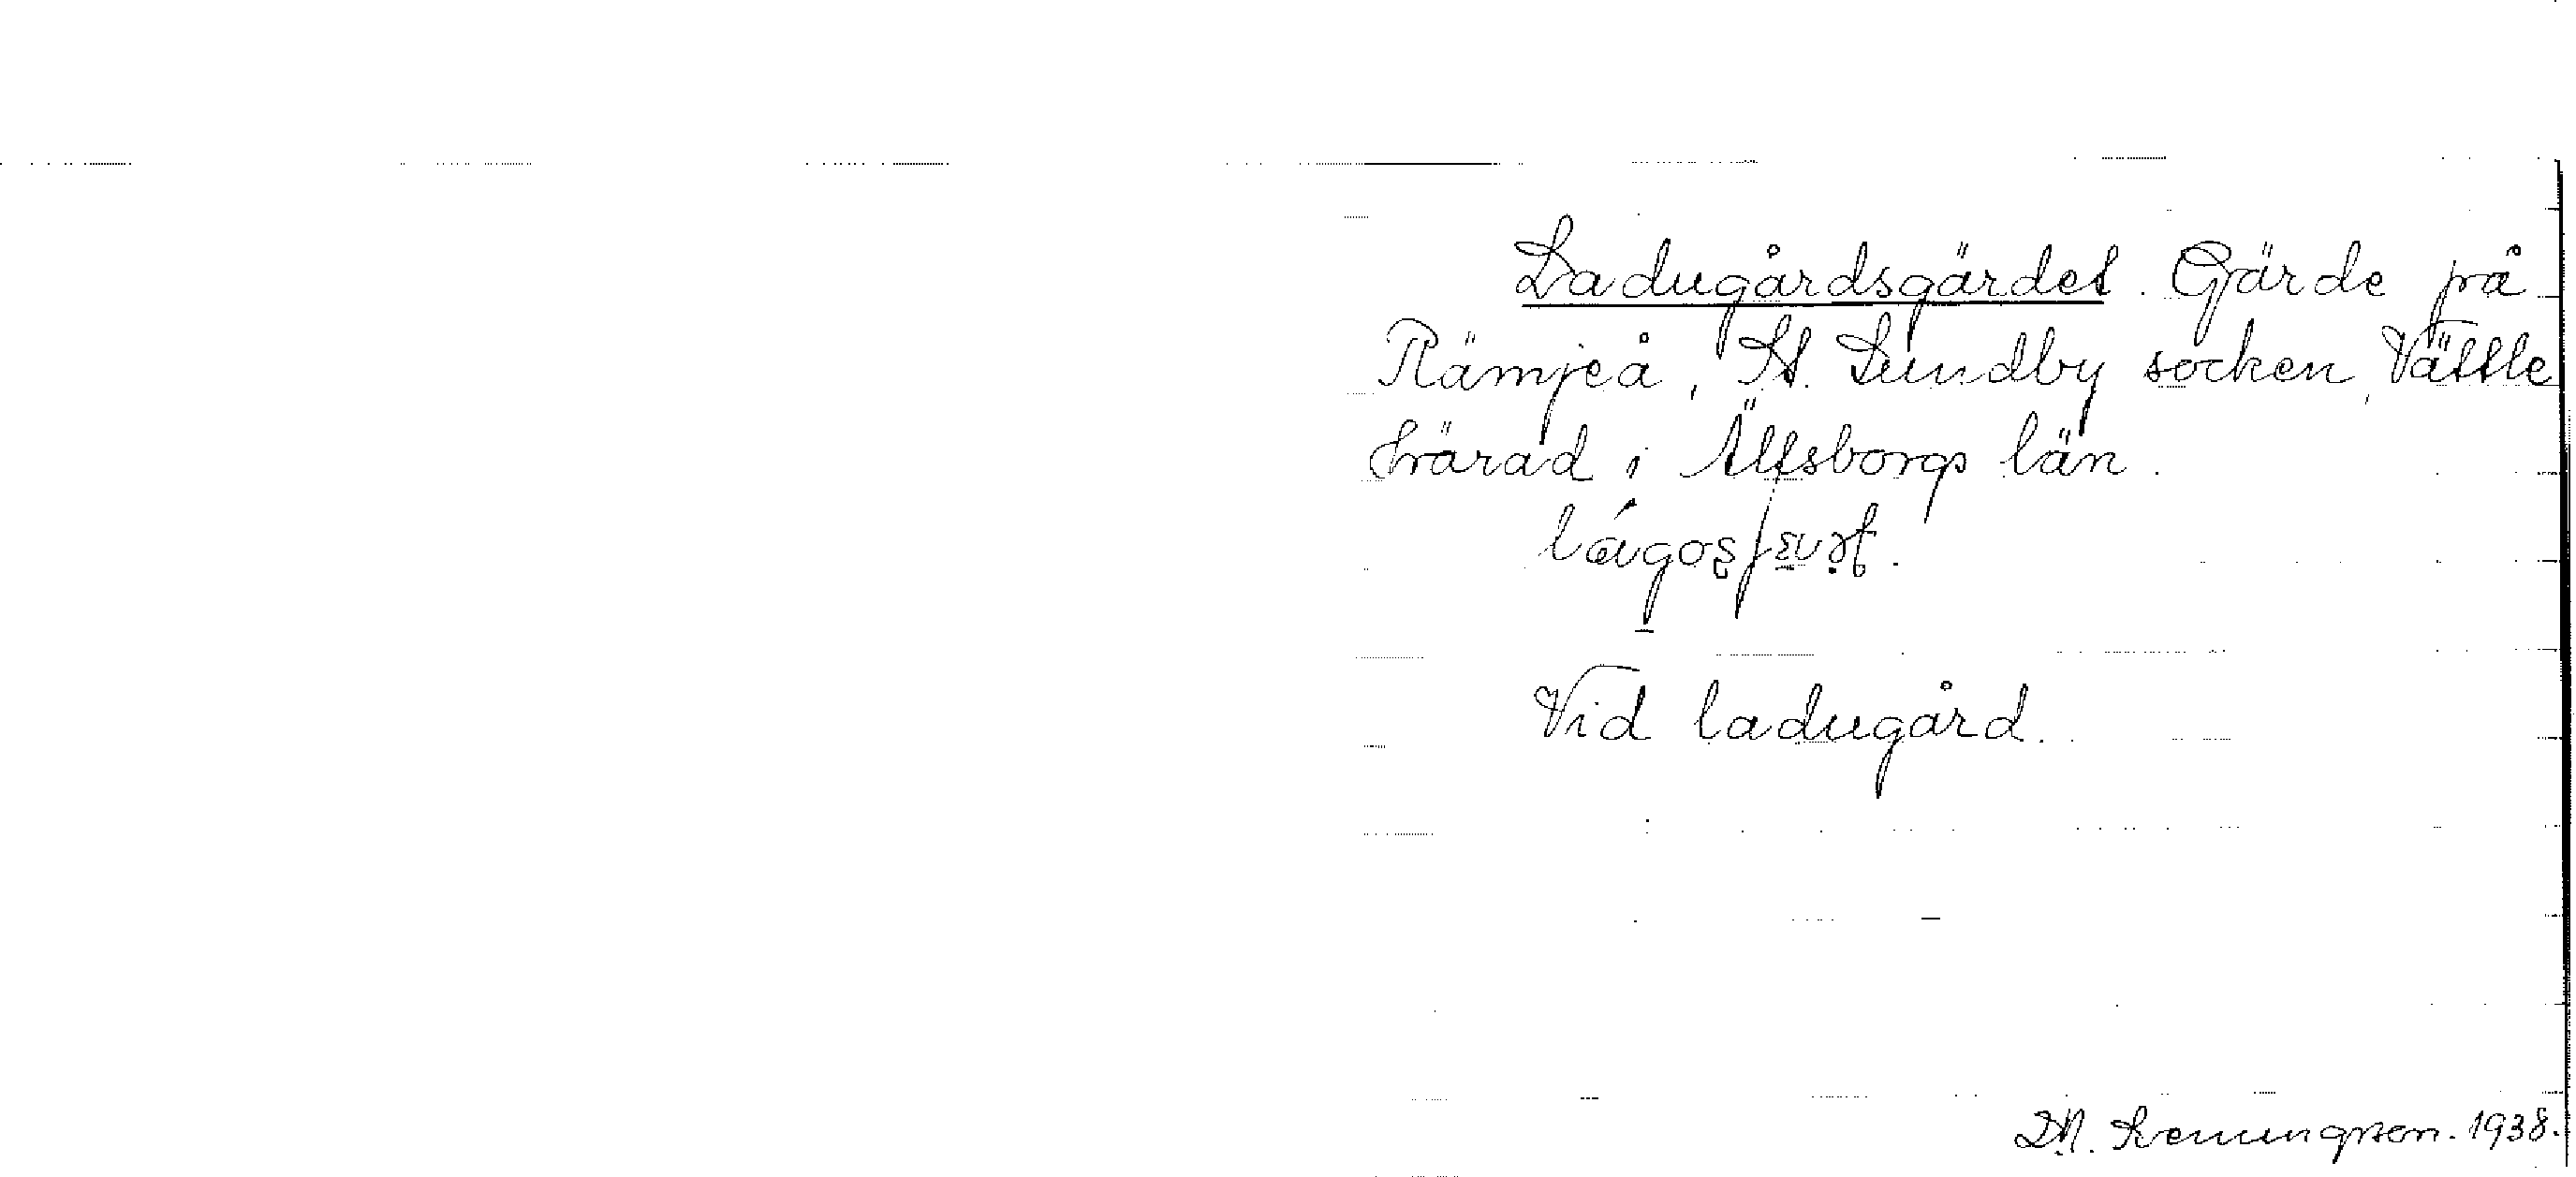 Ladugårdsgärdet. Gärde på
Rämjeå, St. Lundby socken, Vättle
härad i Älfsborgs län.
Vid ladugård.
1938.